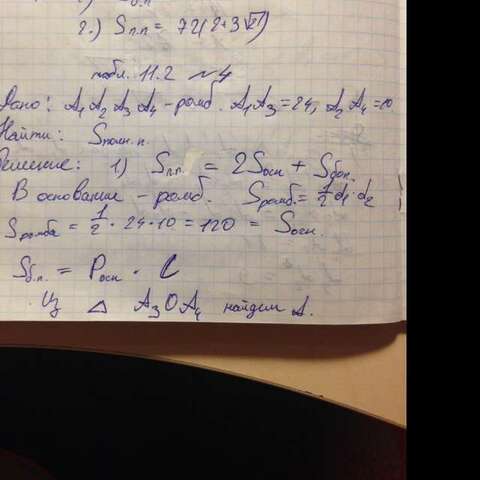 2.) Sп.п = 72(2+3√21)
табл. 11.2 №4
Дано: A₁A₂A₃A₄ - ромб. A₁A₃=24, A₂A₄=10
Найти: Sполн.п.
Решение: 1) Sп.п. = 2Sосн + Sбок.
В основание - ромб. Sромб.= 1/2 d₁·d₂
Sромба = 1/2 · 24·10 = 120 = Sосн.
Sб.п. = Pосн · L
Из △ A₃OA₄ найдем A.